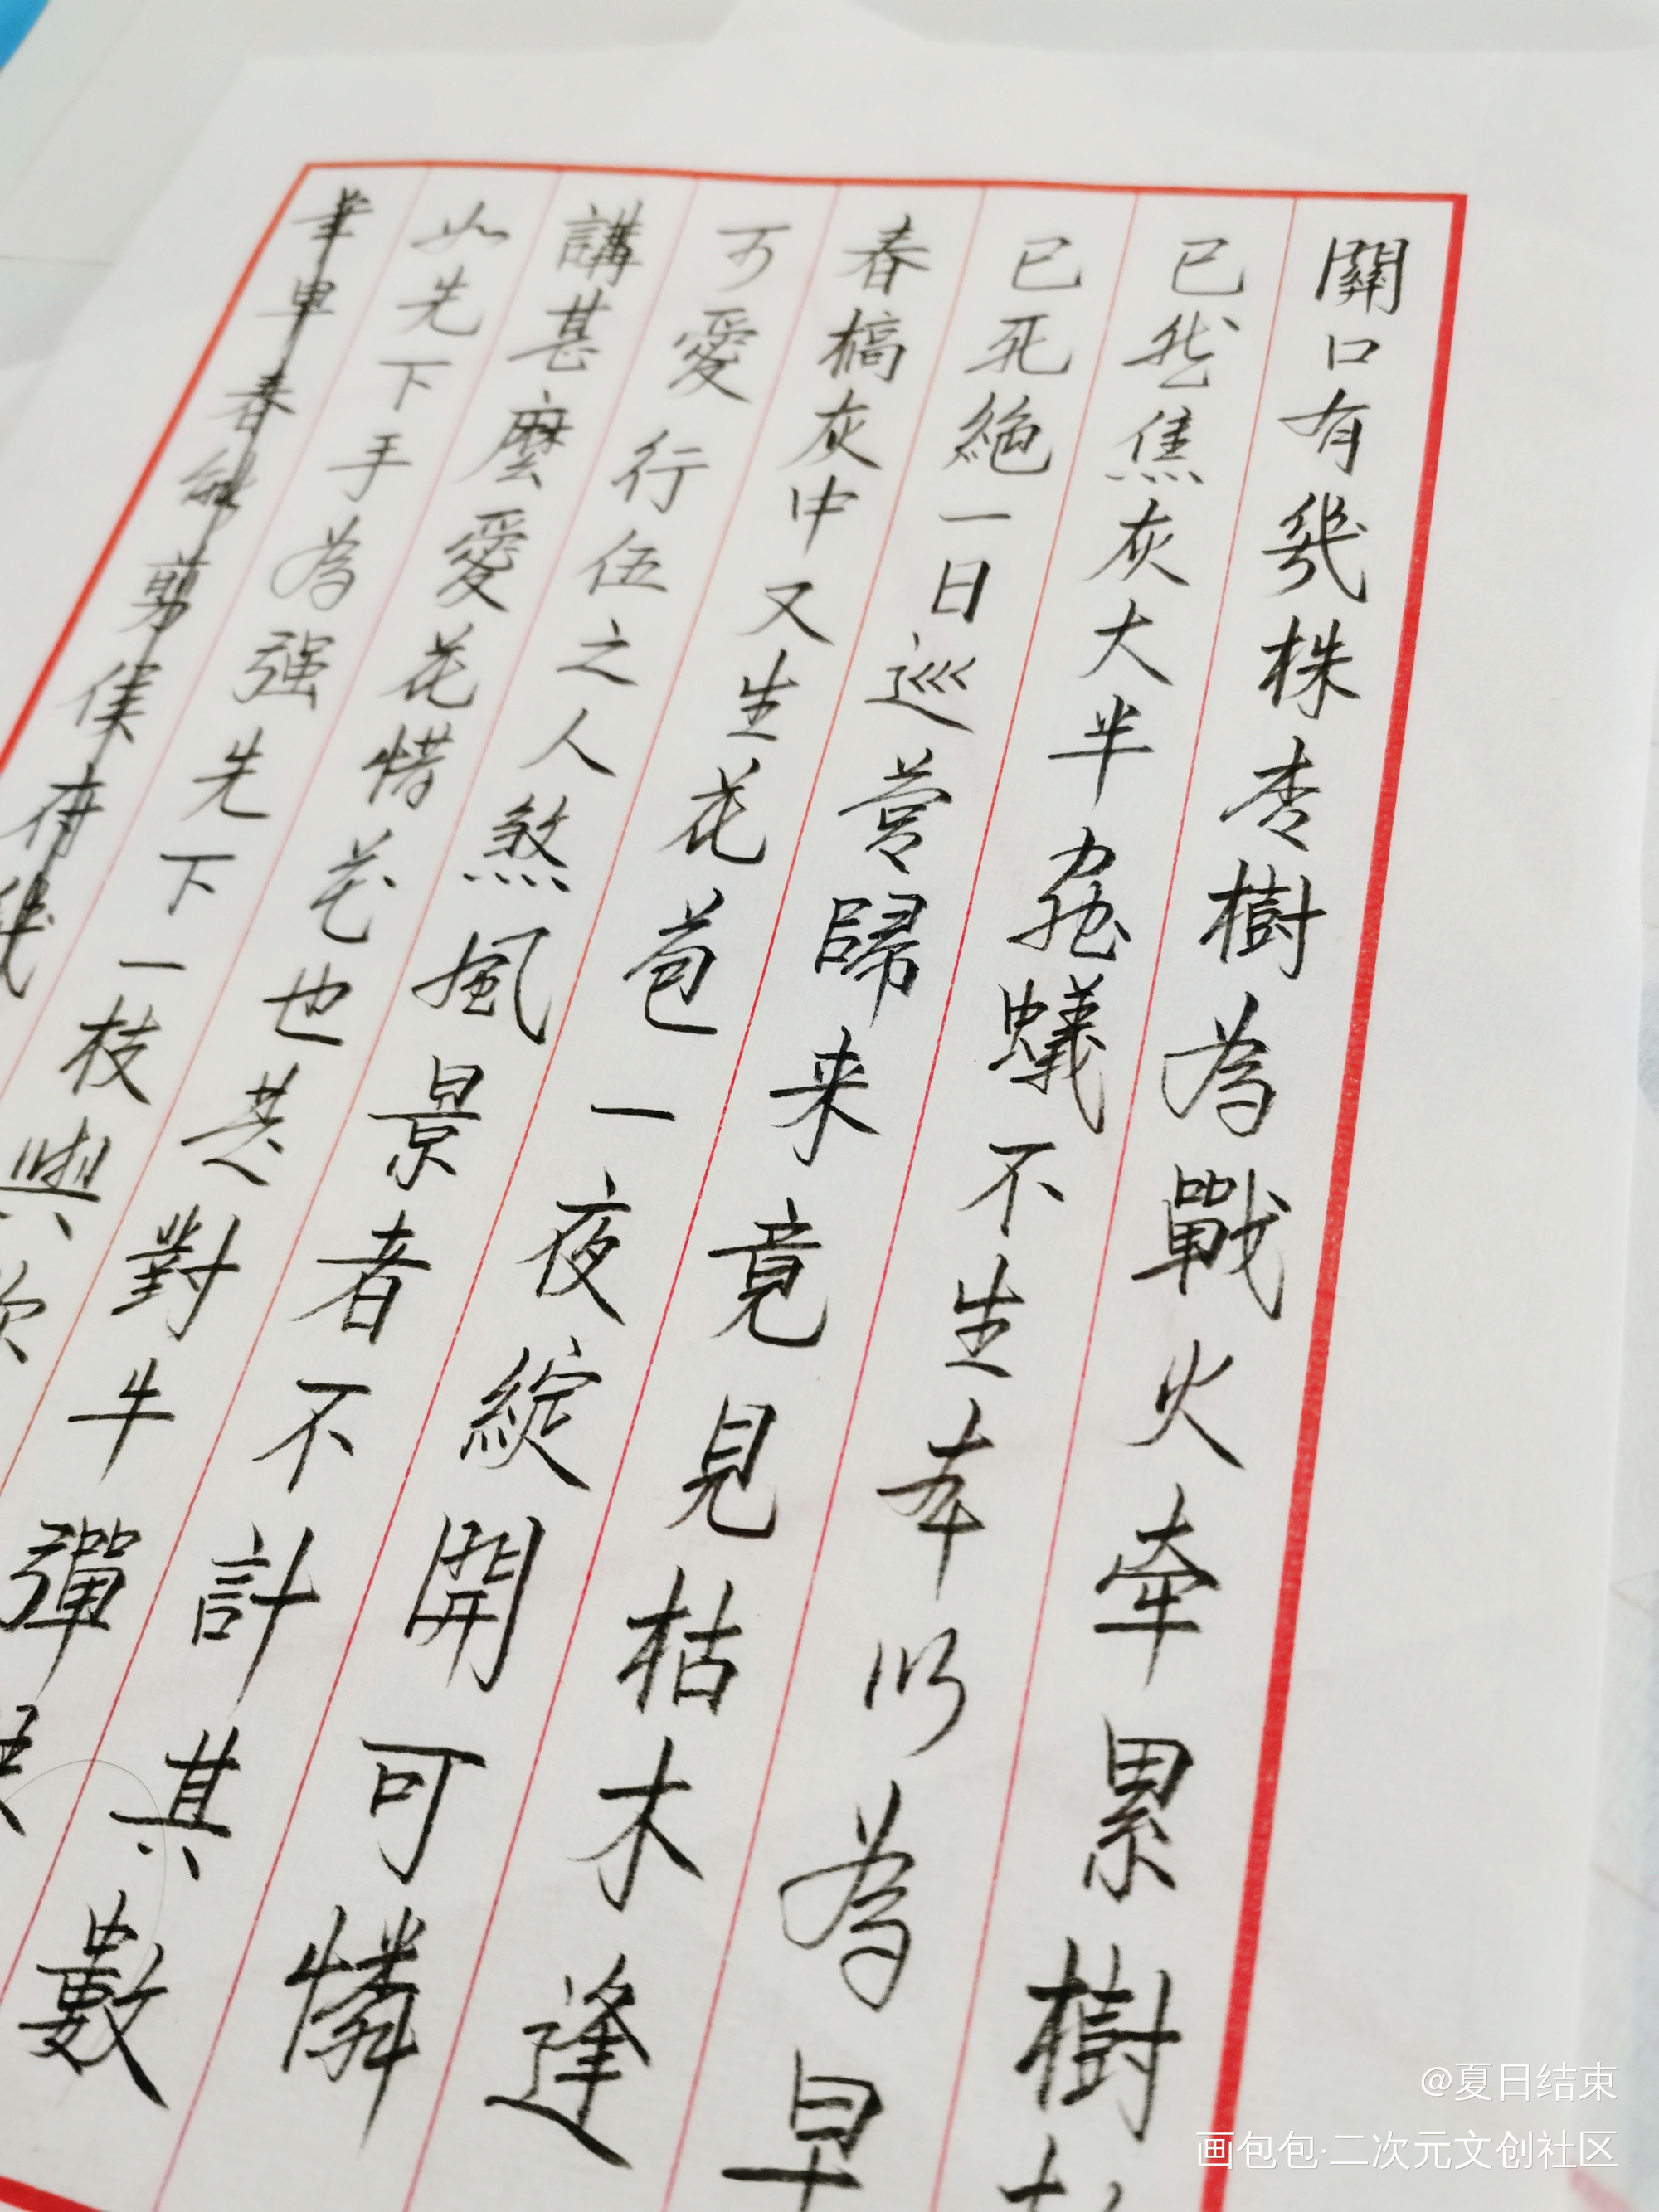 關口有幾株杏樹為戰火牽累樹
已然焦灰大半蟲蟻不生本以為早
已死絕一日巡營歸来竟見枯木逢
春槁灰中又生花苞一夜綻開可憐
可愛行伍之人煞風景者不計其數
講甚麼愛花惜花也是對牛彈
如先下手為强先下一枝與
春 剪
@夏日结束
画包包·二次元文创社区